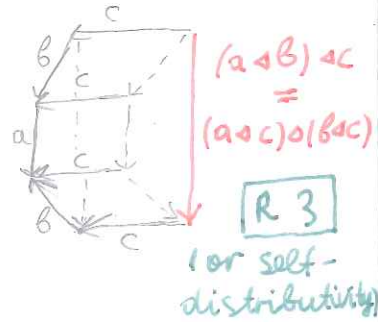 c
b
c
a
c
b
c
(a ◁ b) ◁ c
=
(a ◁ c) ◁ (b ◁ c)
R 3
(or self-
distributivity)